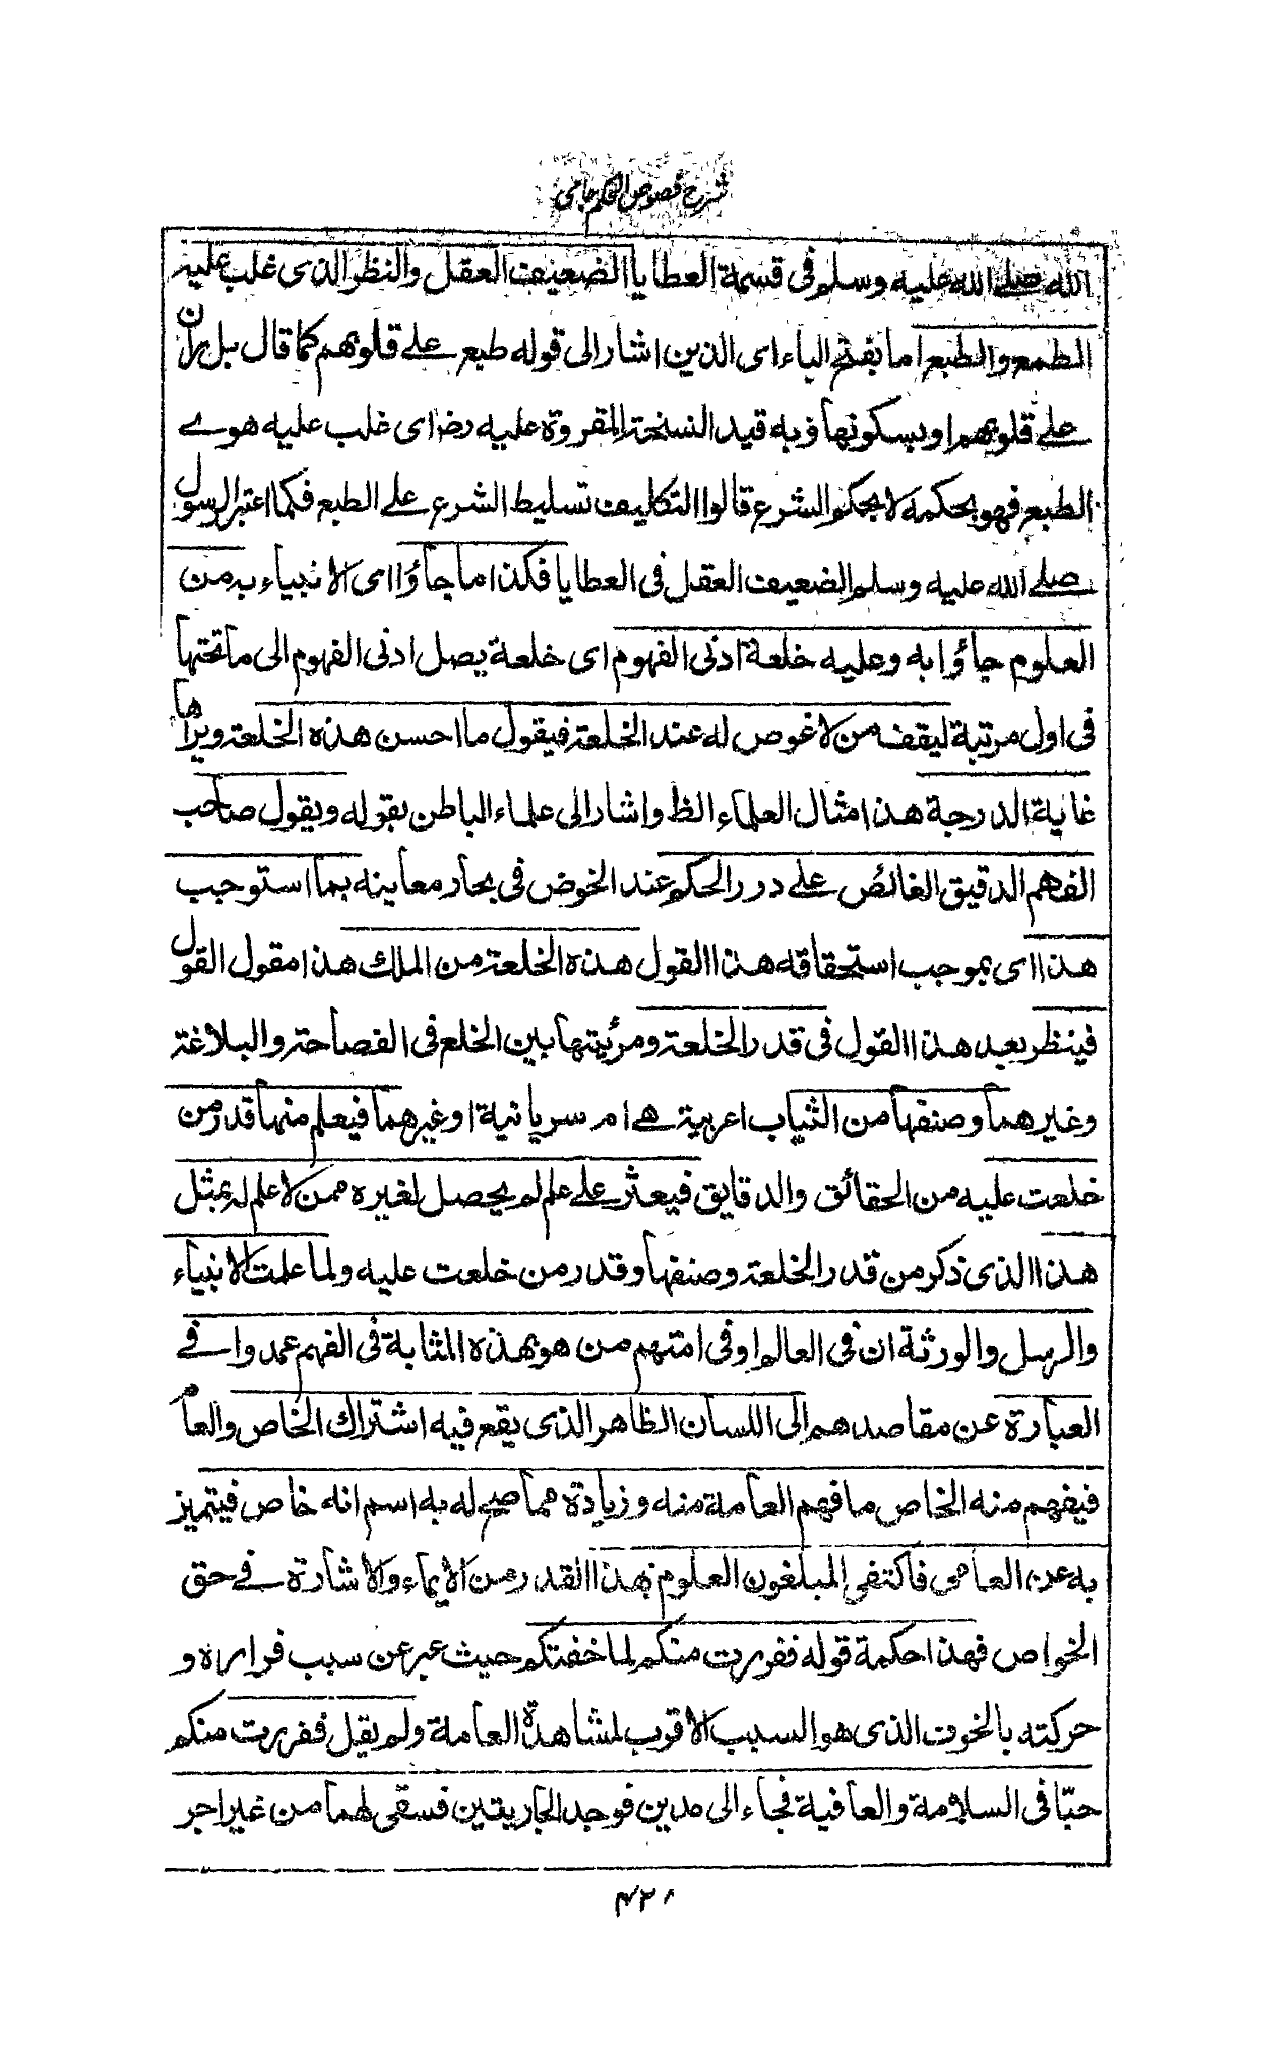 شرح فصوص الحكم جامى
الله صلے الله عليه وسلم فى قسمة العطايا الضعيف العقل والنظر الذى غلب عليه
الطمع والطبع اما بفتح الباء اى الذين اشار الى قوله طبع علے قلوبهم كما قال بل ران
علے قلوبهم او بسكونها وبه قيد النسخة المقروة عليه رضـ اى غلب عليه هوے
الطبع فهو بحكمه لا بحكم الشرع قالوا التكليف تسليط الشرع علے الطبع فكما اعتبر الرسول
صلے الله عليه وسلم الضعيف العقل فى العطايا فكذا ما جاؤا اى الانبياء به من
العلوم جاؤا به وعليه خلعة ادنى الفهوم اى خلعة يصل ادنى الفهوم الى ما تحتها
فى اول مرتبة ليقف من لا غوص له عند الخلعة فيقول ما احسن هذه الخلعة ويراها
غاية الدرجة هذا مثال العلماء الظ واشار الى علماء الباطن بقوله ويقول صاحب
الفهم الدقيق الغائص علے درر الحكم عند الخوض فى بحار معاينه بما استوجب
هذا اى بموجب استحقاقه هذا القول هذه الخلعة من الملك هذا مقول القول
فينظر بعد هذا القول فى قدر الخلعة ومرتبتها بين الخلع فى الفصاحة والبلاغة
وغيرهما وصنفها من الثياب اعربية هے ام سريانية او غيرهما فيعلم منها قدر من
خلعت عليه من الحقائق والدقايق فيعثر علے علم لم يحصل لغيره ممن لا علم له بمثل
هذا الذى ذكر من قدر الخلعة وصنفها وقدر من خلعت عليه ولما علمت الانبياء
والرسل والورثة ان فى العالم او فى امتهم من هو بهذه المثابة فى الفهم عمدوا فے
العبارة عن مقاصدهم الى اللسان الظاهر الذى يقع فيه اشتراك الخاص والعام
فيفهم منه الخاص ما فهم العامة منه وزيادة مما صح له به اسم انه خاص فيتميز
به عن العامى فاكتفى المبلغون العلوم بهذا القدر من الايماء والاشارة فے حق
الخواص فهذا حكمة قوله ففررت منكم لما خفتكم حيث عبر عن سبب فراره و
حركته بالخوف الذى هو السبب الاقرب لمشاهدة العامة ولم يقل ففررت منكم
حبّا فى السلامة والعافية فجاء الى مدين فوجد الجاريتين فسقى لهما من غير اجر